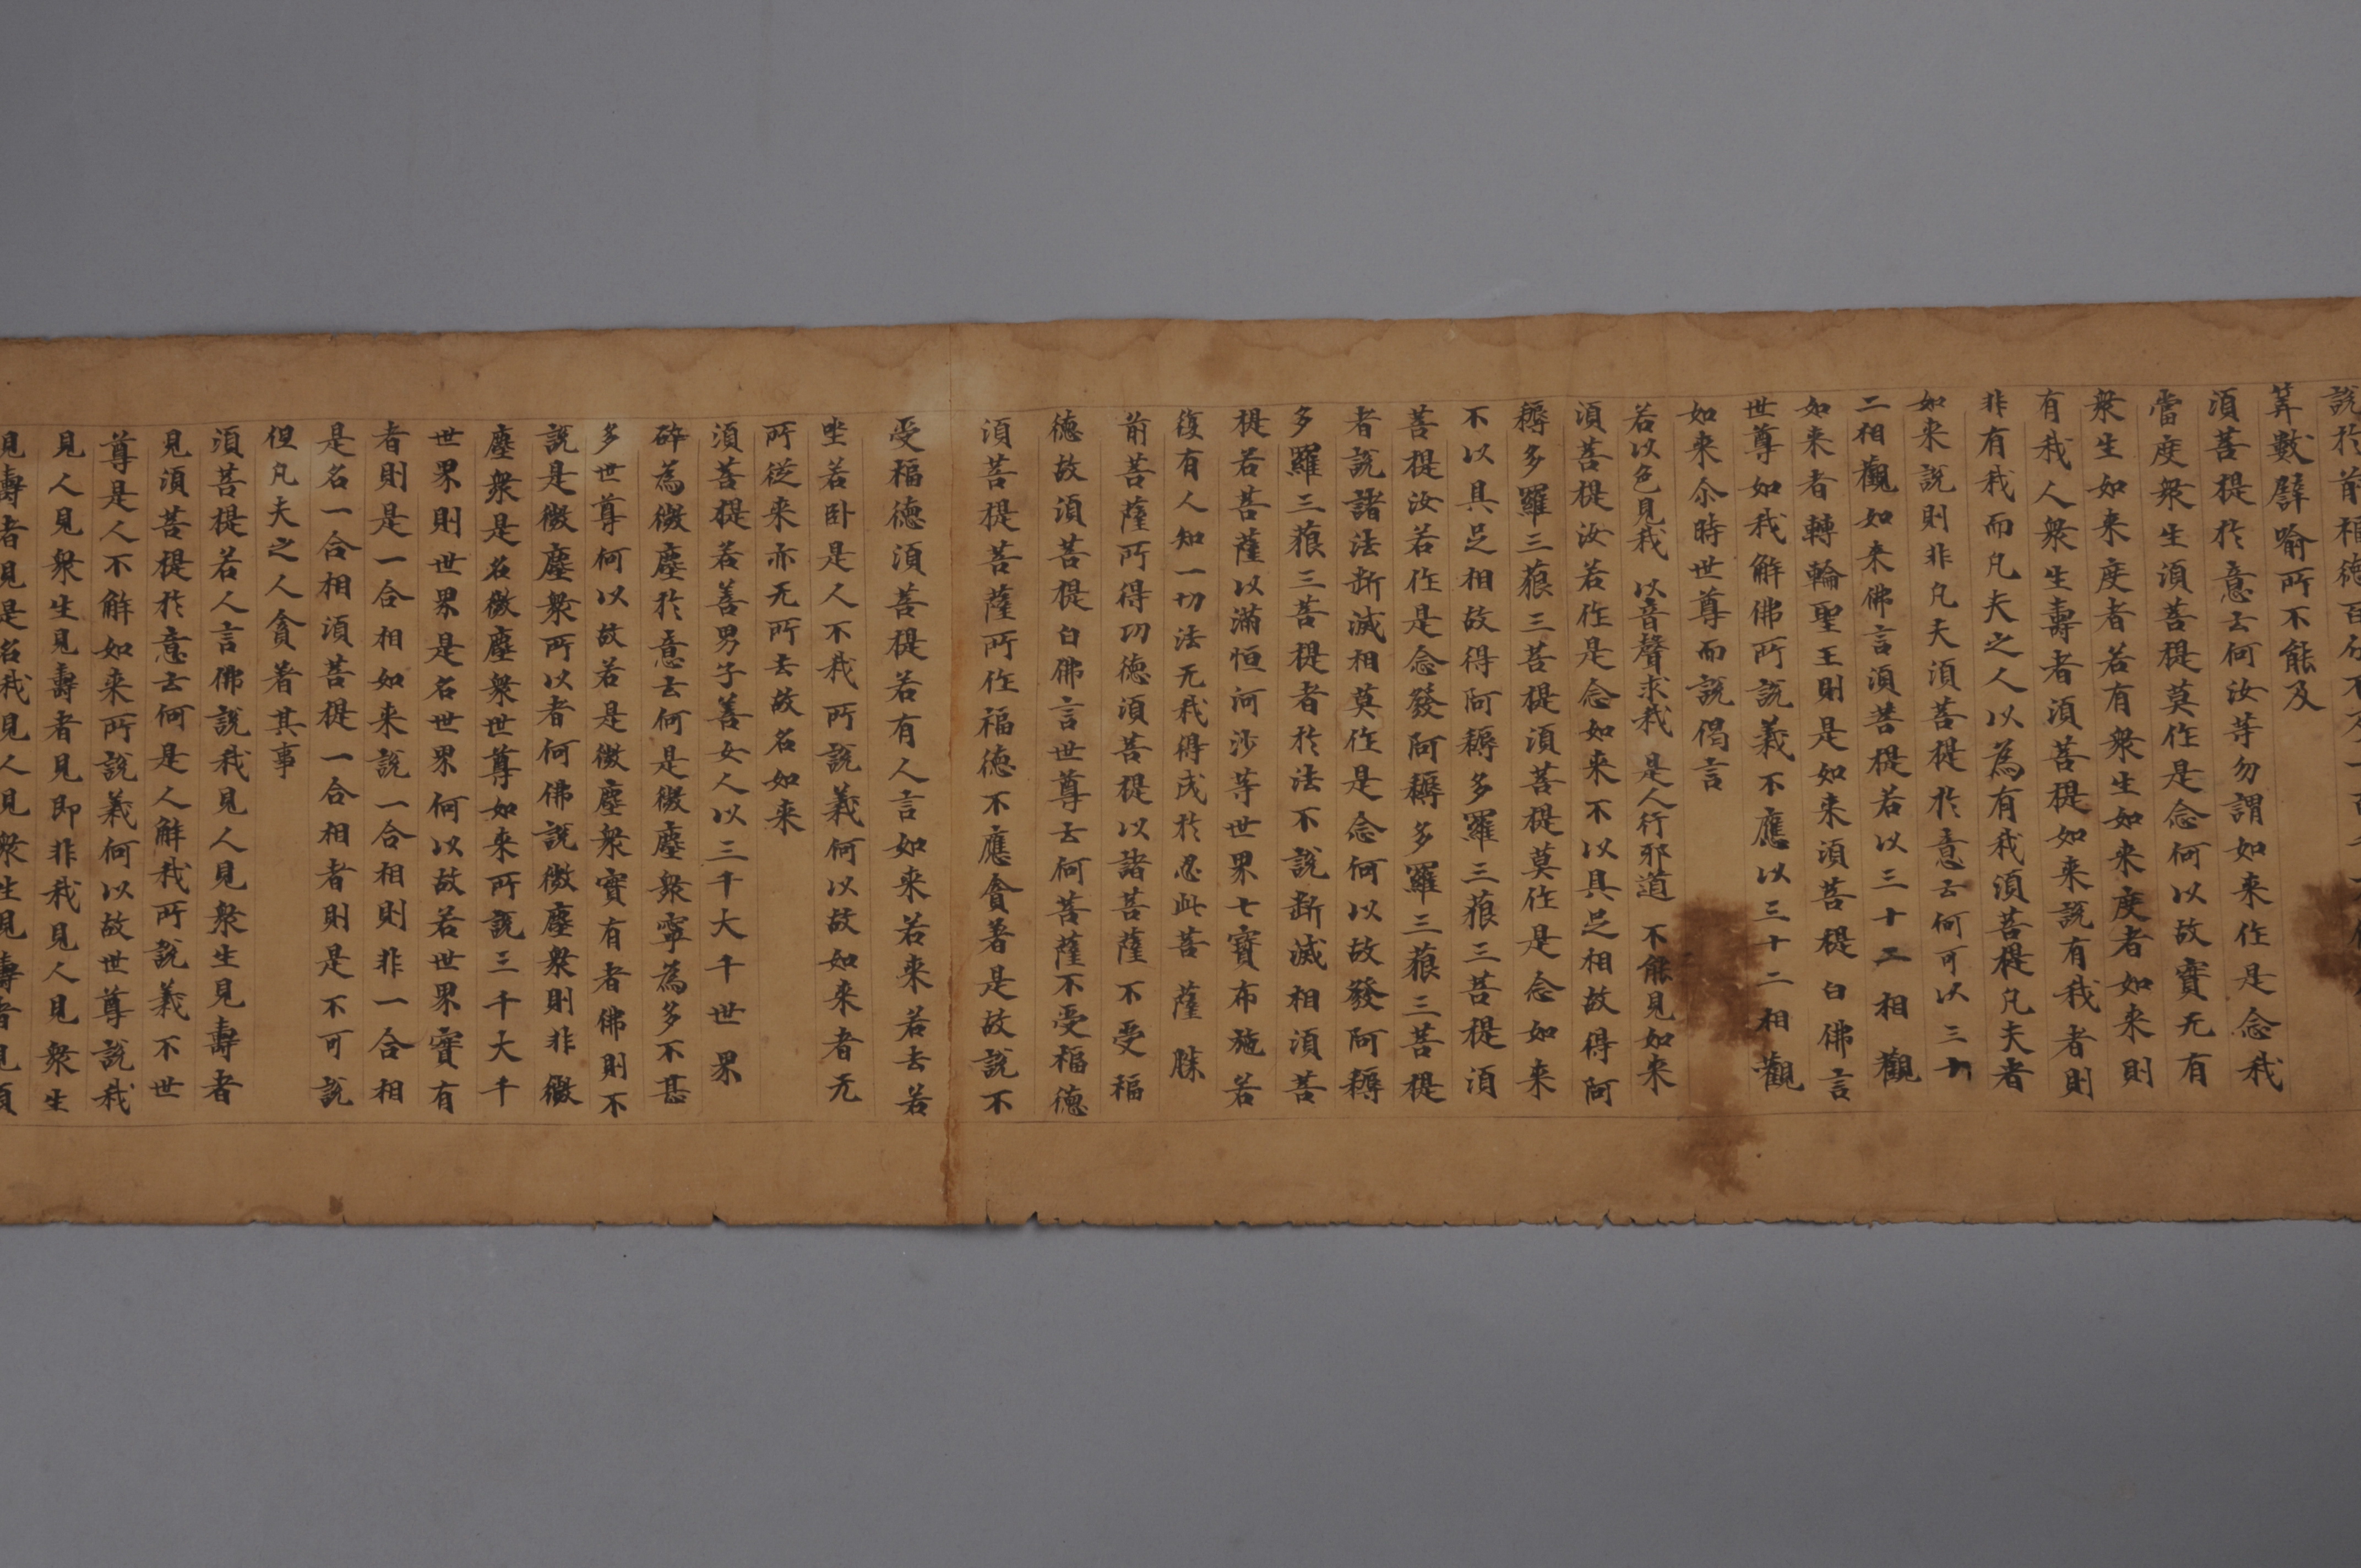 說於前福德百分不及一百千
筭數譬喻所不能及
須菩提於意云何汝等勿謂如來作是念我
當度衆生須菩提莫作是念何以故實无有
衆生如來度者若有衆生如來度者如來則
有我人衆生壽者須菩提如來說有我者則
非有我而凡夫之人以為有我須菩提凡夫者
如來說則非凡夫須菩提於意云何可以三十
二相觀如來佛言須菩提若以三十二相觀
如來者轉輪聖王則是如來須菩提白佛言
世尊如我解佛所說義不應以三十二相觀
如來尒時世尊而說偈言
若以色見我 以音聲求我 是人行邪道 不能見如來
須菩提汝若作是念如來不以具足相故得阿
耨多羅三藐三菩提須菩提莫作是念如來
不以具足相故得阿耨多羅三藐三菩提須
菩提汝若作是念發阿耨多羅三藐三菩提
者說諸法斷滅相莫作是念何以故發阿耨
多羅三藐三菩提者於法不說斷滅相須菩
提若菩薩以滿恒河沙等世界七寶布施若
復有人知一切法无我得成於忍此菩薩勝
前菩薩所得功德須菩提以諸菩薩不受福
德故須菩提白佛言世尊云何菩薩不受福德
須菩提菩薩所作福德不應貪著是故說不
受福德須菩提若有人言如來若來若去若
坐若卧是人不我所說義何以故如來者无
所從來亦无所去故名如來
須菩提若善男子善女人以三千大千世界
碎為微塵於意云何是微塵衆寧為多不甚
多世尊何以故若是微塵衆實有者佛則不
說是微塵衆所以者何佛說微塵衆則非微
塵衆是名微塵衆世尊如來所說三千大千
世界則世界是名世界何以故若世界實有
者則是一合相如來說一合相則非一合相
是名一合相須菩提一合相者則是不可說
但凡夫之人貪著其事
須菩提若人言佛說我見人見衆生見壽者
見須菩提於意云何是人解我所說義不世
尊是人不解如來所說義何以故世尊說我
見人見衆生見壽者見即非我見人見衆生
見壽者見是名我見人見衆生見壽者見須